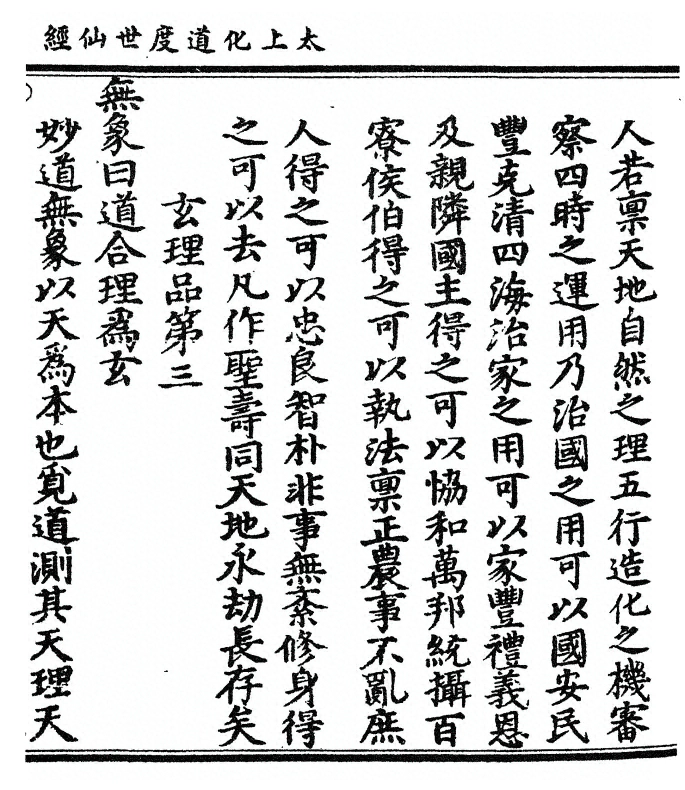 太上化道度世仙經
人若禀天地自然之理五行造化之機審
察四時之運用乃治國之用可以國安民
豐克清四海治家之用可以家豐禮義恩
及親隣國主得之可以恊和萬邦統攝百
寮侯伯得之可以執法禀正農事不亂庶
人得之可以忠良智朴非事無紊修身得
之可以去凡作聖壽同天地永劫長存矣
玄理品第三
無象曰道合理爲玄
妙道無象以天爲本也覓道測其天理天